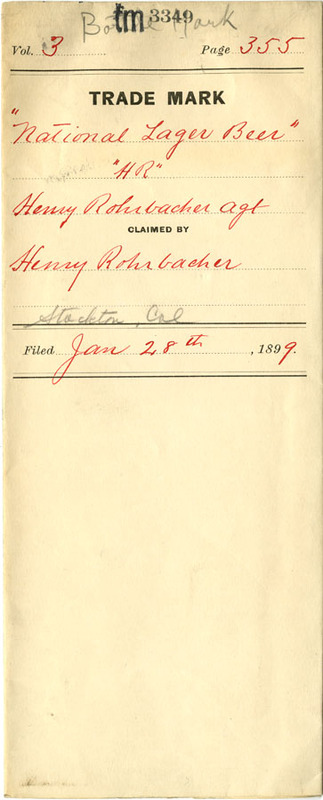 Bottle Mark
tm 3349
Vol. 3 Page 355
TRADE MARK
"National Lager Beer"
"HR"
Henry Rohrbacher agt
CLAIMED BY
Henry Rohrbacher
Stockton, Cal
Filed Jan 28th, 1899.